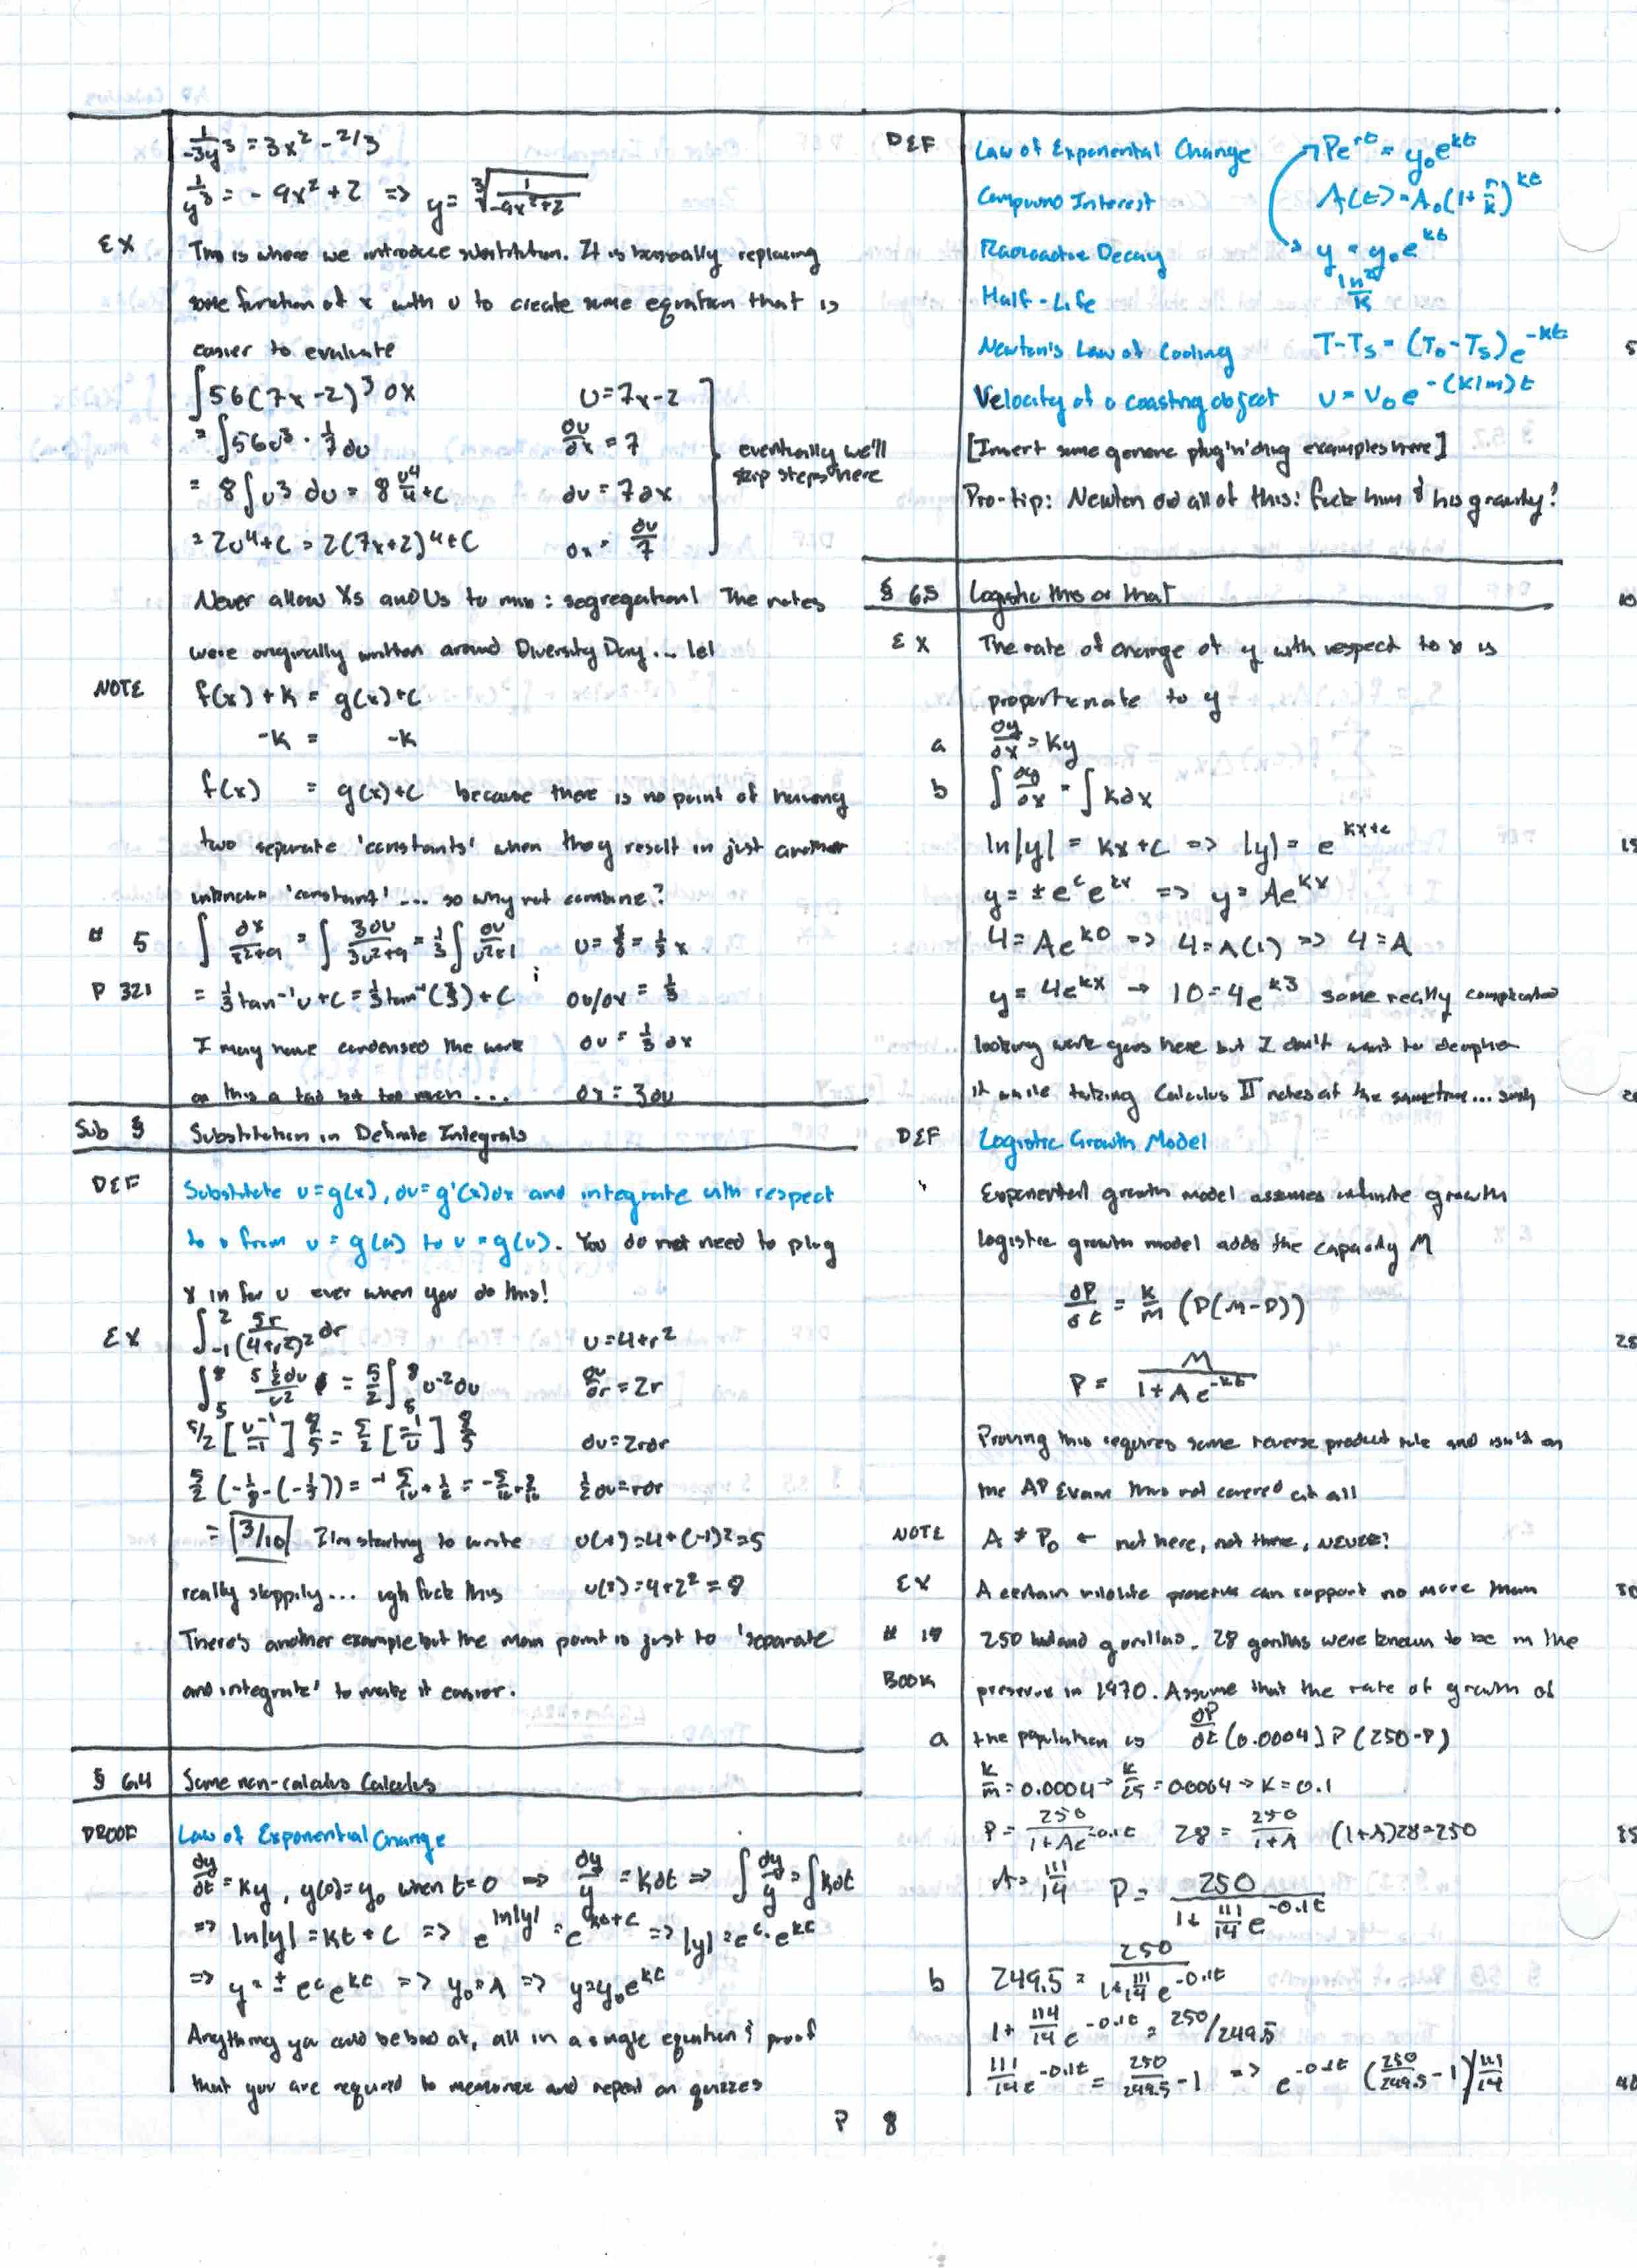 1/-3y³ = 3x² - 2/3
1/y³ = -9x² + 2 => y = ∛(1/(-9x²+2))
EX This is where we introduce substitution. It is basically replacing
some function of x with u to create some equation that is
easier to evaluate
∫56(7x-2)³ dx u=7x-2
= ∫56u³ · 1/7 du du/dx = 7 eventually we'll
= 8∫u³ du = 8 u⁴/4 + C du = 7dx skip steps here
= 2u⁴+C = 2(7x+2)⁴+C dx = du/7
Never allow Xs and Us to mix: segregation! The notes
were originally written around Diversity Day... lel
NOTE f(x) + K = g(x)+C
-K = -K
f(x) = g(x)+C because there is no point of having
two separate 'constants' when they result in just another
unknown 'constant'... so why not combine?
# 5 ∫ dx/(x²+9) = ∫ 3du/(3u²+9) = 1/3 ∫ du/(u²+1) u = x/3 = 1/3 x
P 321 = 1/3 tan⁻¹u + C = 1/3 tan⁻¹(x/3) + C du/dx = 1/3
I may have condensed the work du = 1/3 dx
on this a tad bit too much... dx = 3du
Sub § Substitution in Definite Integrals
DEF Substitute u=g(x), du=g'(x)dx and integrate with respect
to u from u = g(a) to u = g(b). You do not need to plug
x in for u ever when you do this!
EX ∫₋₁² 5r/(4+r²)² dr u=4+r²
∫₅⁸ 5 1/2 du/u² = 5/2 ∫₅⁸ u⁻² du du/dr = 2r
5/2 [u⁻¹/-1] 8/5 = 5/2 [-1/u] 8/5 du=2rdr
5/2 (-1/8 - (-1/5)) = -5/16 + 1/2 = -5/16 + 8/16 1/2 du=rdr
= 3/10 I'm starting to write u(-1)=4+(-1)²=5
really sloppily... ugh fuck this u(2)=4+2²=8
There's another example but the main point is just to 'separate
and integrate' to make it easier.
§ 6.4 Some non-calculus Calculus
PROOF Law of Exponential Change
dy/dt = Ky, y(0)=y₀ when t=0 => dy/y = Kdt => ∫dy/y = ∫Kdt
=> ln|y| = Kt + C => e^ln|y| = e^(Kt+C) => |y| = e^C · e^Kt
=> y = ± e^C e^Kt => y₀ = A => y=y₀e^Kt
Anything ya could be bad at, all in a single equation & proof
that you are required to memorize and repeat on quizzes
DEF Law of Exponential Change Pe^rt = y₀e^kt
Compound Interest A(t) = A₀(1+r/k)^kt
Radioactive Decay y = y₀e^kt
Half-Life ln2/K
Newton's Law of Cooling T-Ts = (T₀-Ts)e^-kt 5
Velocity of a coasting object v = v₀e^-(k/m)t
[Insert some generic plug 'n' chug examples here]
Pro-tip: Newton did all of this! fuck him & his gravity!
§ 6.5 Logistic this or that 10
EX The rate of change of y with respect to x is
proportionate to y
a dy/dx = Ky
b ∫ dy/dx = ∫ Kdx
ln|y| = Kx + C => |y| = e^(Kx+C) 15
y = ±e^C e^kx => y = Ae^Kx
4 = Ae^K0 => 4 = A(1) => 4 = A
y = 4e^kx → 10 = 4e^k3 some really complicated
looking work goes here but I don't want to decipher
it while taking Calculus II notes at the same time... 20
DEF Logistic Growth Model
Exponential growth model assumes infinite growth
logistic growth model adds the capacity M
dP/dt = k/m (P(M-P))
P = M/(1+Ae^-kt) 25
Proving this requires some reverse product rule and isn't on
the AP Exam thus not covered at all
NOTE A ≠ P₀ ← not here, not there, NEVER!
EX A certain wildlife preserve can support no more than 30
# 19 250 lowland gorillas. 28 gorillas were known to be in the
BOOK preserve in 1970. Assume that the rate of growth of
a the population is dP/dt (0.0004) P (250-P)
k/m = 0.0004 → k/25 = 0.0004 → K = 0.1
P = 250/(1+Ae^-0.1t) 28 = 250/(1+A) (1+A)28=250 35
A = 111/14 P = 250/(1 + 111/14 e^-0.1t)
b 249.5 = 250/(1+ 111/14 e^-0.1t)
1+ 114/14 e^-0.1t = 250/249.5
111/14 e^-0.1t = 250/249.5 - 1 => e^-0.1t (250/249.5 - 1)/ 111/14 40
P 8